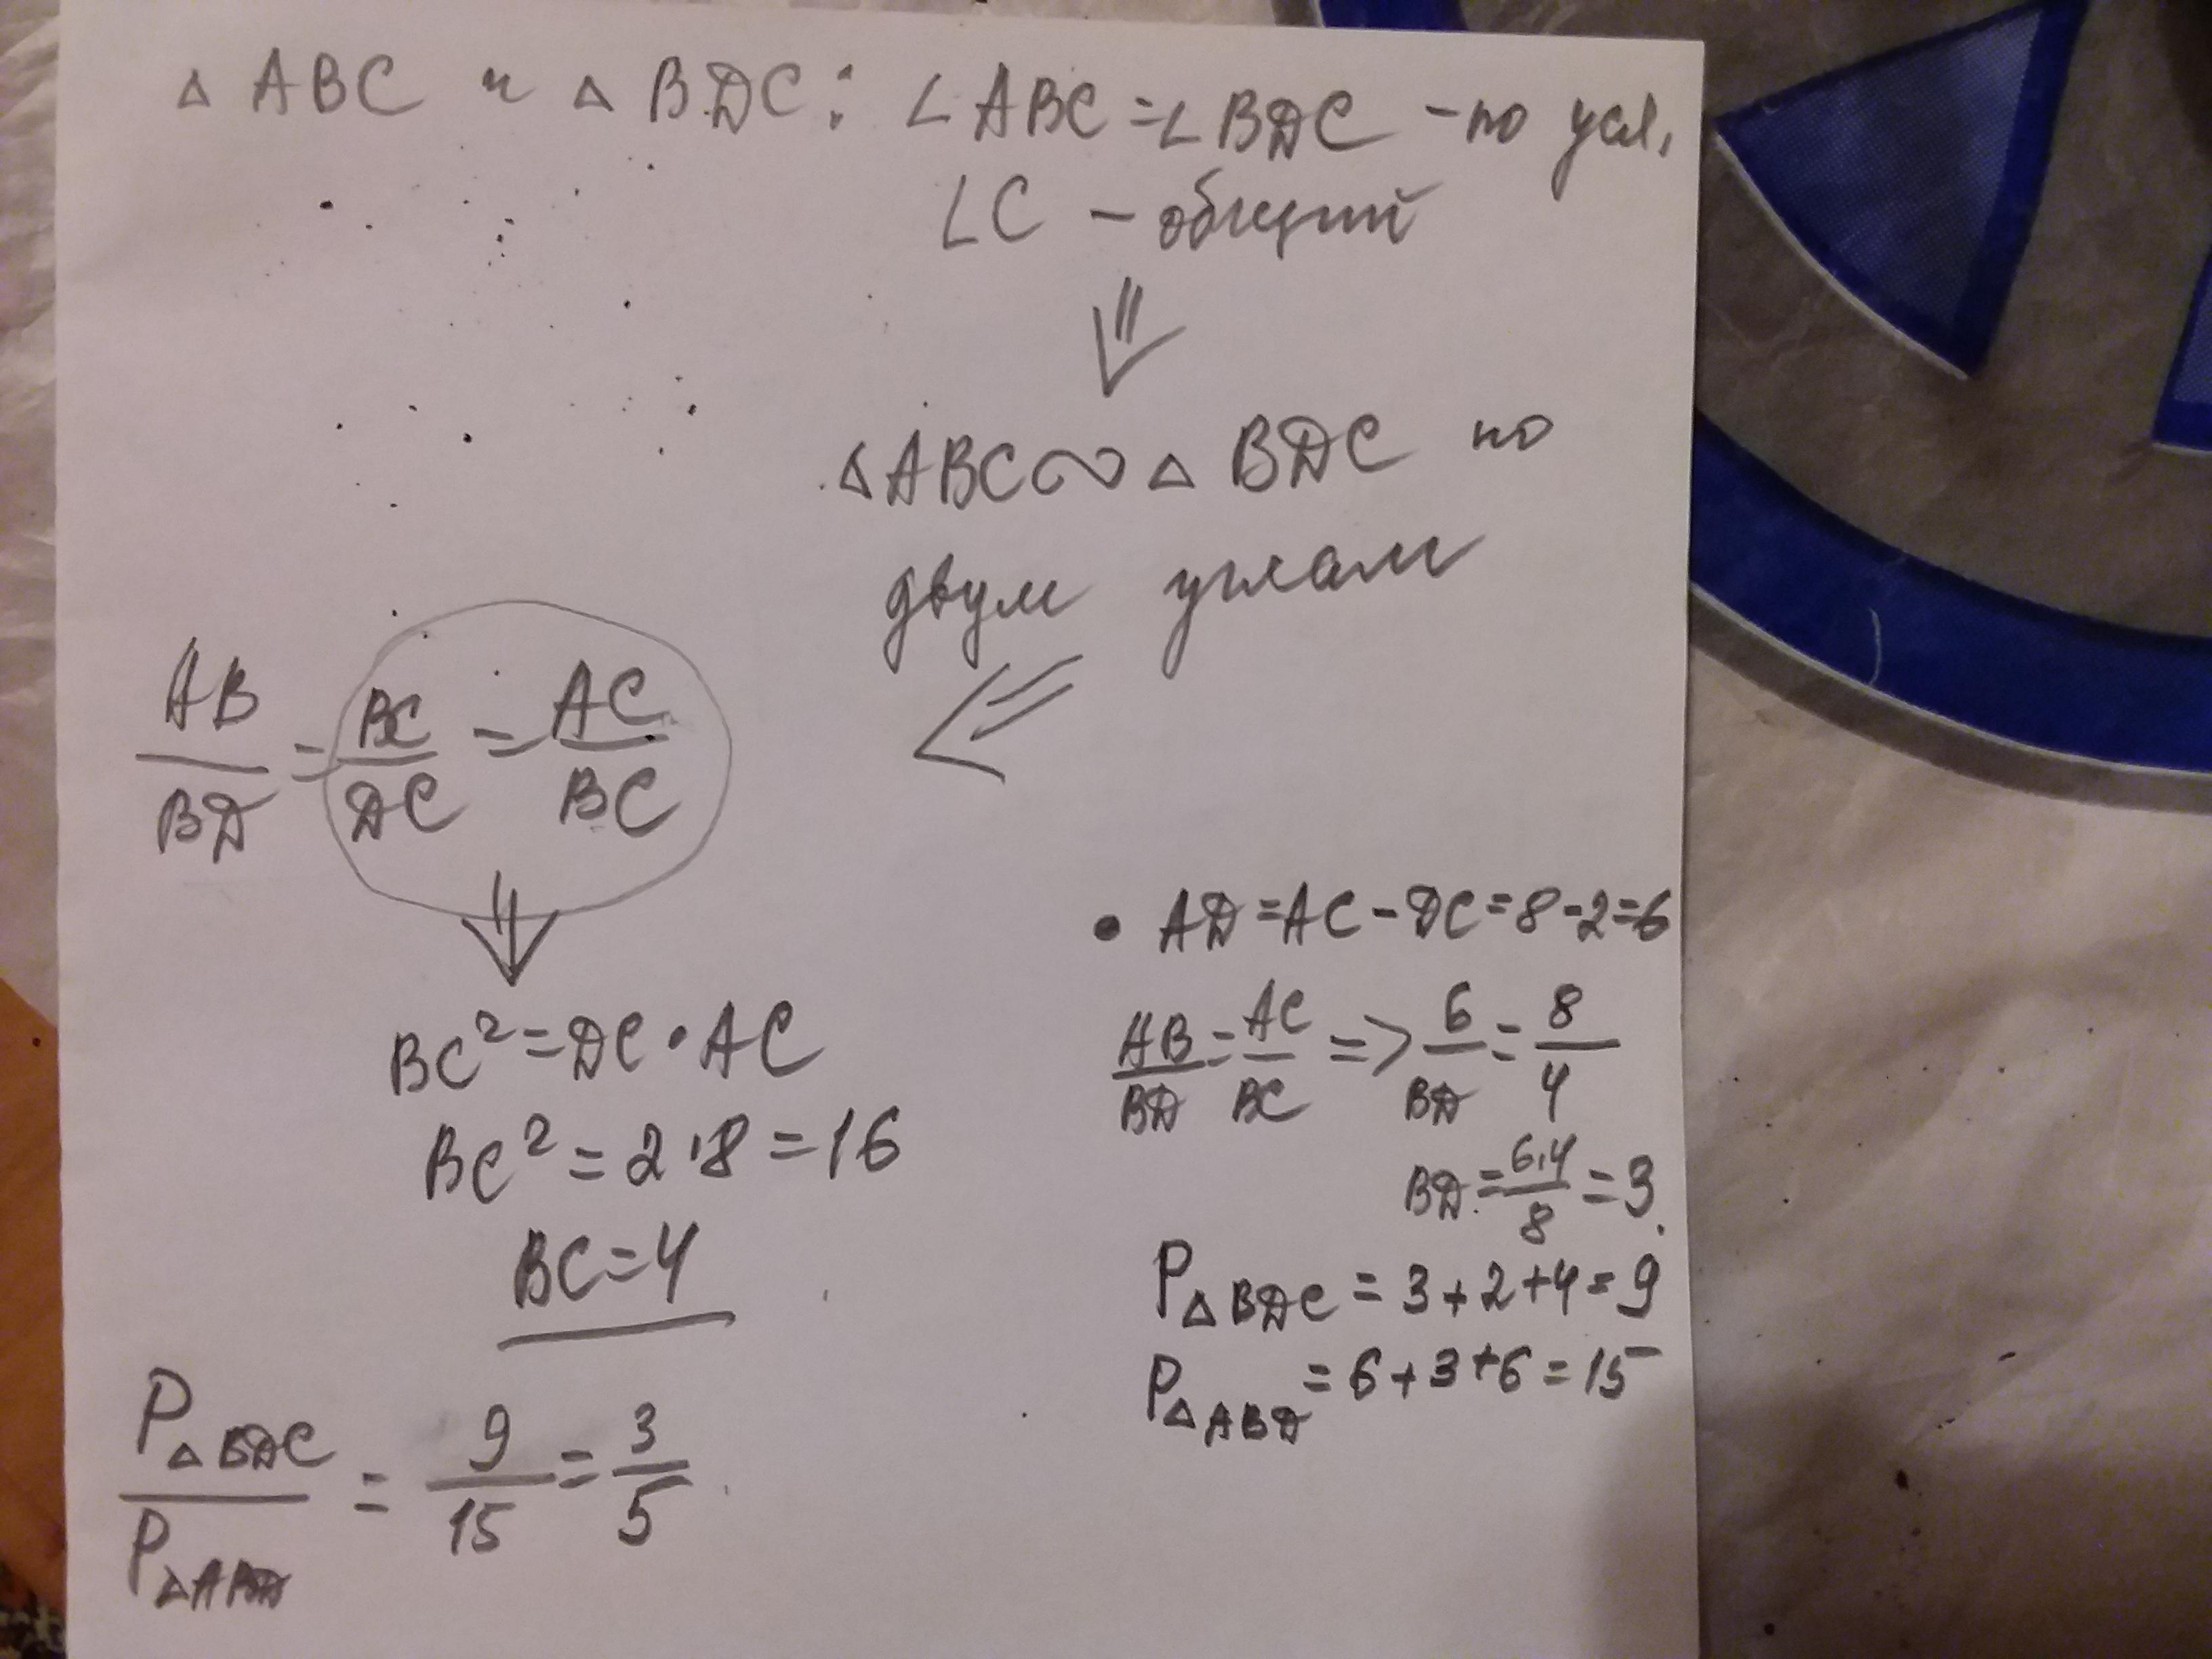 △ ABC и △ BDC: ∠ABC = ∠BDC - по усл.
∠C - общий
⇓
△ABC ∾ △BDC по
двум углам
AB/BD = BC/DC = AC/BC
BC² = DC · AC
BC² = 2 · 8 = 16
BC = 4
• AD = AC - DC = 8 - 2 = 6
AB/BD = AC/BC => 6/BD = 8/4
BD = 6·4/8 = 3.
P△BDC = 3 + 2 + 4 = 9
P△ABD = 6 + 3 + 6 = 15
P△BDC/P△ABD = 9/15 = 3/5